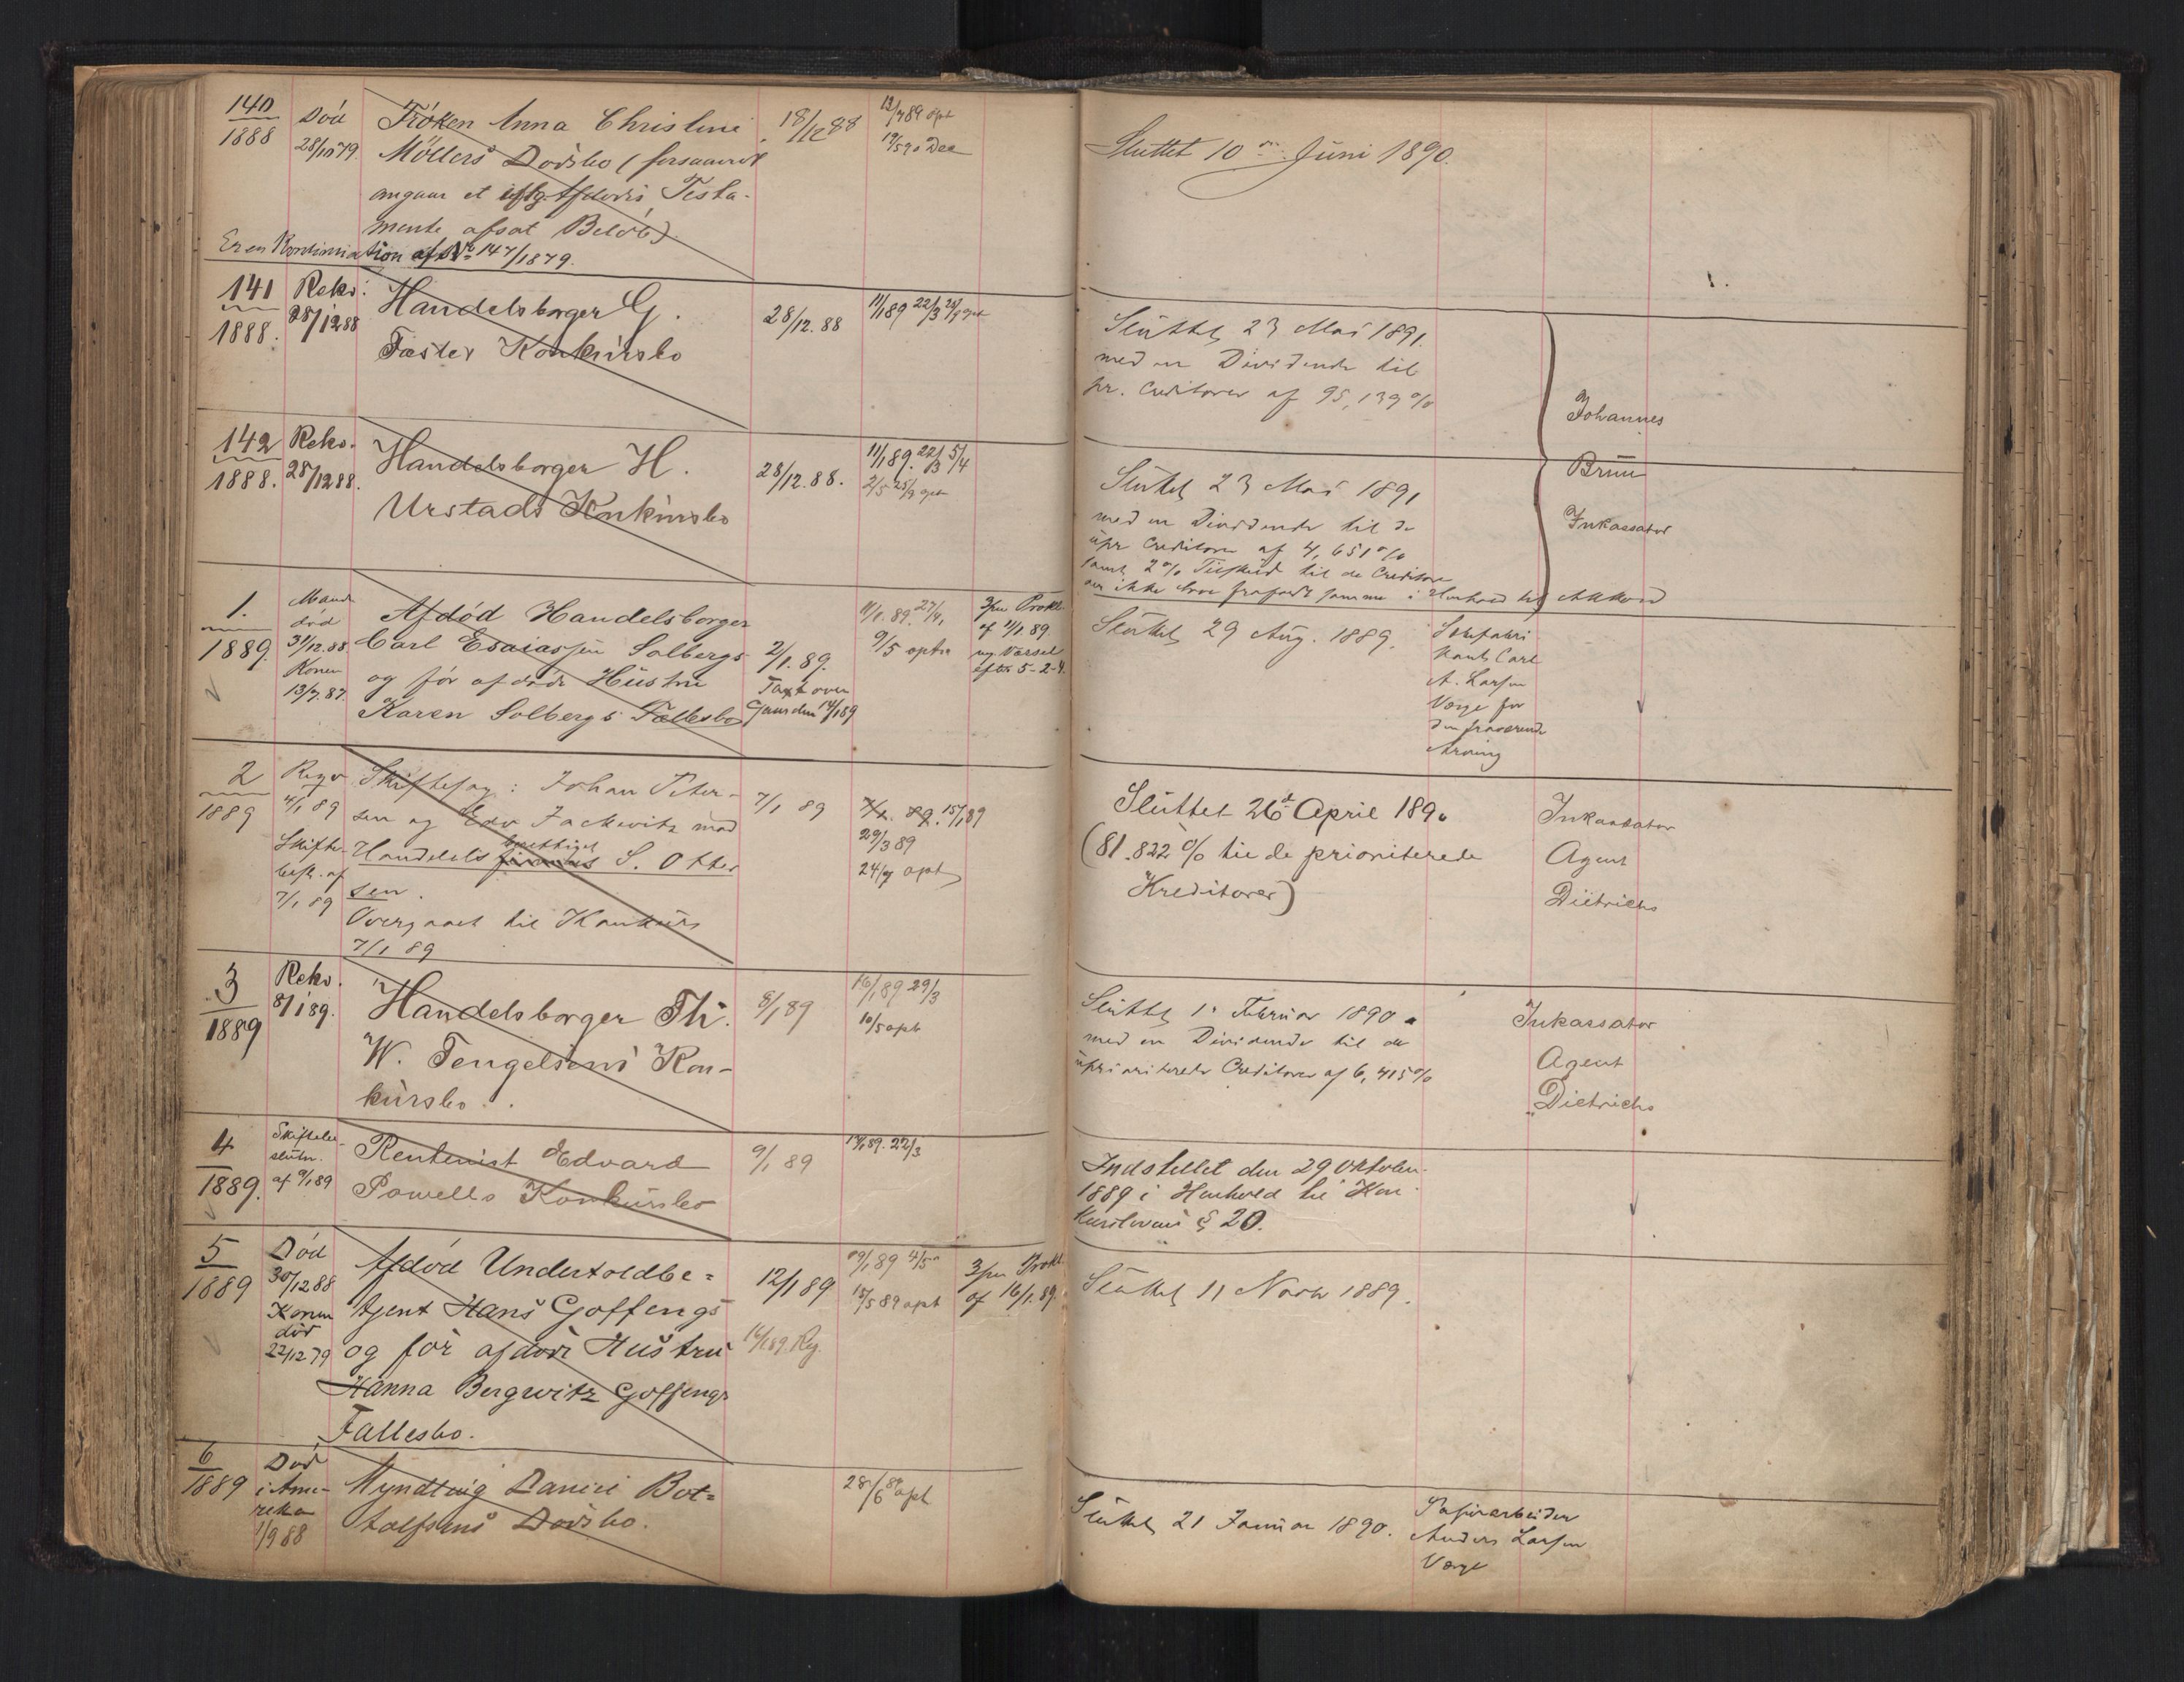 140
1888
Död
28/10 79
Fröken Anna Christine
Möllers Dödsbo (forsaavidt
angaar et iflg. Afdödes Testa-
mente afsat Belöb)
Er en Kontinuation af No 147/1879.
18/12 88
12/7 89 opt
19/5 90 Dec
Sluttet 10de Juni 1890.
141
1888.
Reko:
28/12 88
Handelsborger G.
Fæster Konkursbo
28/12. 88
11/1 89 22/3
Sluttet 23 Mai 1891.
med en Dividende til
pr. Creditorer af 95,139 %
142
1888.
Reko.
28/12 88.
Handelsborger H.
Urstads Konkursbo
28/12. 88.
11/1 89. 22/3 5/4
2/5
Sluttet 23 Mai 1891
med en Dividende til de
upr Creditorer af 4,651 %
samt 2 % Tilskud til de Creditorer
som ikke have frafaldt samme i Henhold til Akkord
Johannes
Bruun
Inkassator
1.
1889.
Mand
död
31/12.88
Konen
13/7.87.
Afdöd Handelsborger
Carl Esaiassen Solbergs
og för afdöde Hustru
Karen Solbergs Fællesbo
2/1. 89.
Taxt over
Gaarden 14/1 89
11/1. 89. 27/4
9/5 optn
3pn Prokl.
af 11/1 89.
og Varsel
efter 5-2-4.
Sluttet 29 Aug. 1889.
Carl
A. Larsen
Værge for
den fraværende
Arving
2
1889
Reqv
4/1 89
Skifte-
besl. af
7/1 89
Skiftesag: Johan Peter-
sen og Edv Jackwitz mod
berettiget
Handels firmaet S. Otter
sen.
Overgaaet til Konkurs
7/1 89
7/1 89
7/1. 89. 15/1 89
29/3 89
24/7 opt
Sluttet 26d April 1890
(81.822 % til de prioriterede
Kreditorer)
Inkassator
Agent
Dietrichs
3
1889
Reko.
8/1 89.
Handelsborger Th.
W. Tengelsens Kon-
kursbo.
8/1 89
16/1 89 29/3
10/5 opt
Sluttet 1. Februar 1890
med en Dividende til de
uprioriterede Creditorer af 6,415 %
Inkassator
Agent
Dietrichs
4
1889.
Skiftebe-
slutn.
af 9/1 89
Rentenist Edvard
Powells Konkursbo
9/1 89
17/1 89. 22/3
Indstillet den 29 Oktober
1889 i Henhold til Kon-
kursloven § 20.
5
1889
Död
30/12 88
Konen
död
22/12 79
Afdöd Undertoldbe=
tjent Hans Goffengs
og för afdöde Hustru
Hanna Bergwitz Goffengs
Fællesbo.
12/1 89
14/1 89. Rg.
19/1 89 4/5
15/5 89 opt
3pn Prokl.
af 16/1. 89.
Sluttet 11 Novbr 1889.
6
1889
Död
i Ame-
rika
1/9 88
Myndling Daniel Bot=
tolfsens Dödsbo.
28/6 89 opt
Sluttet 21 Januar 1890.
Papirarbeider
Anders Larsen
Værge